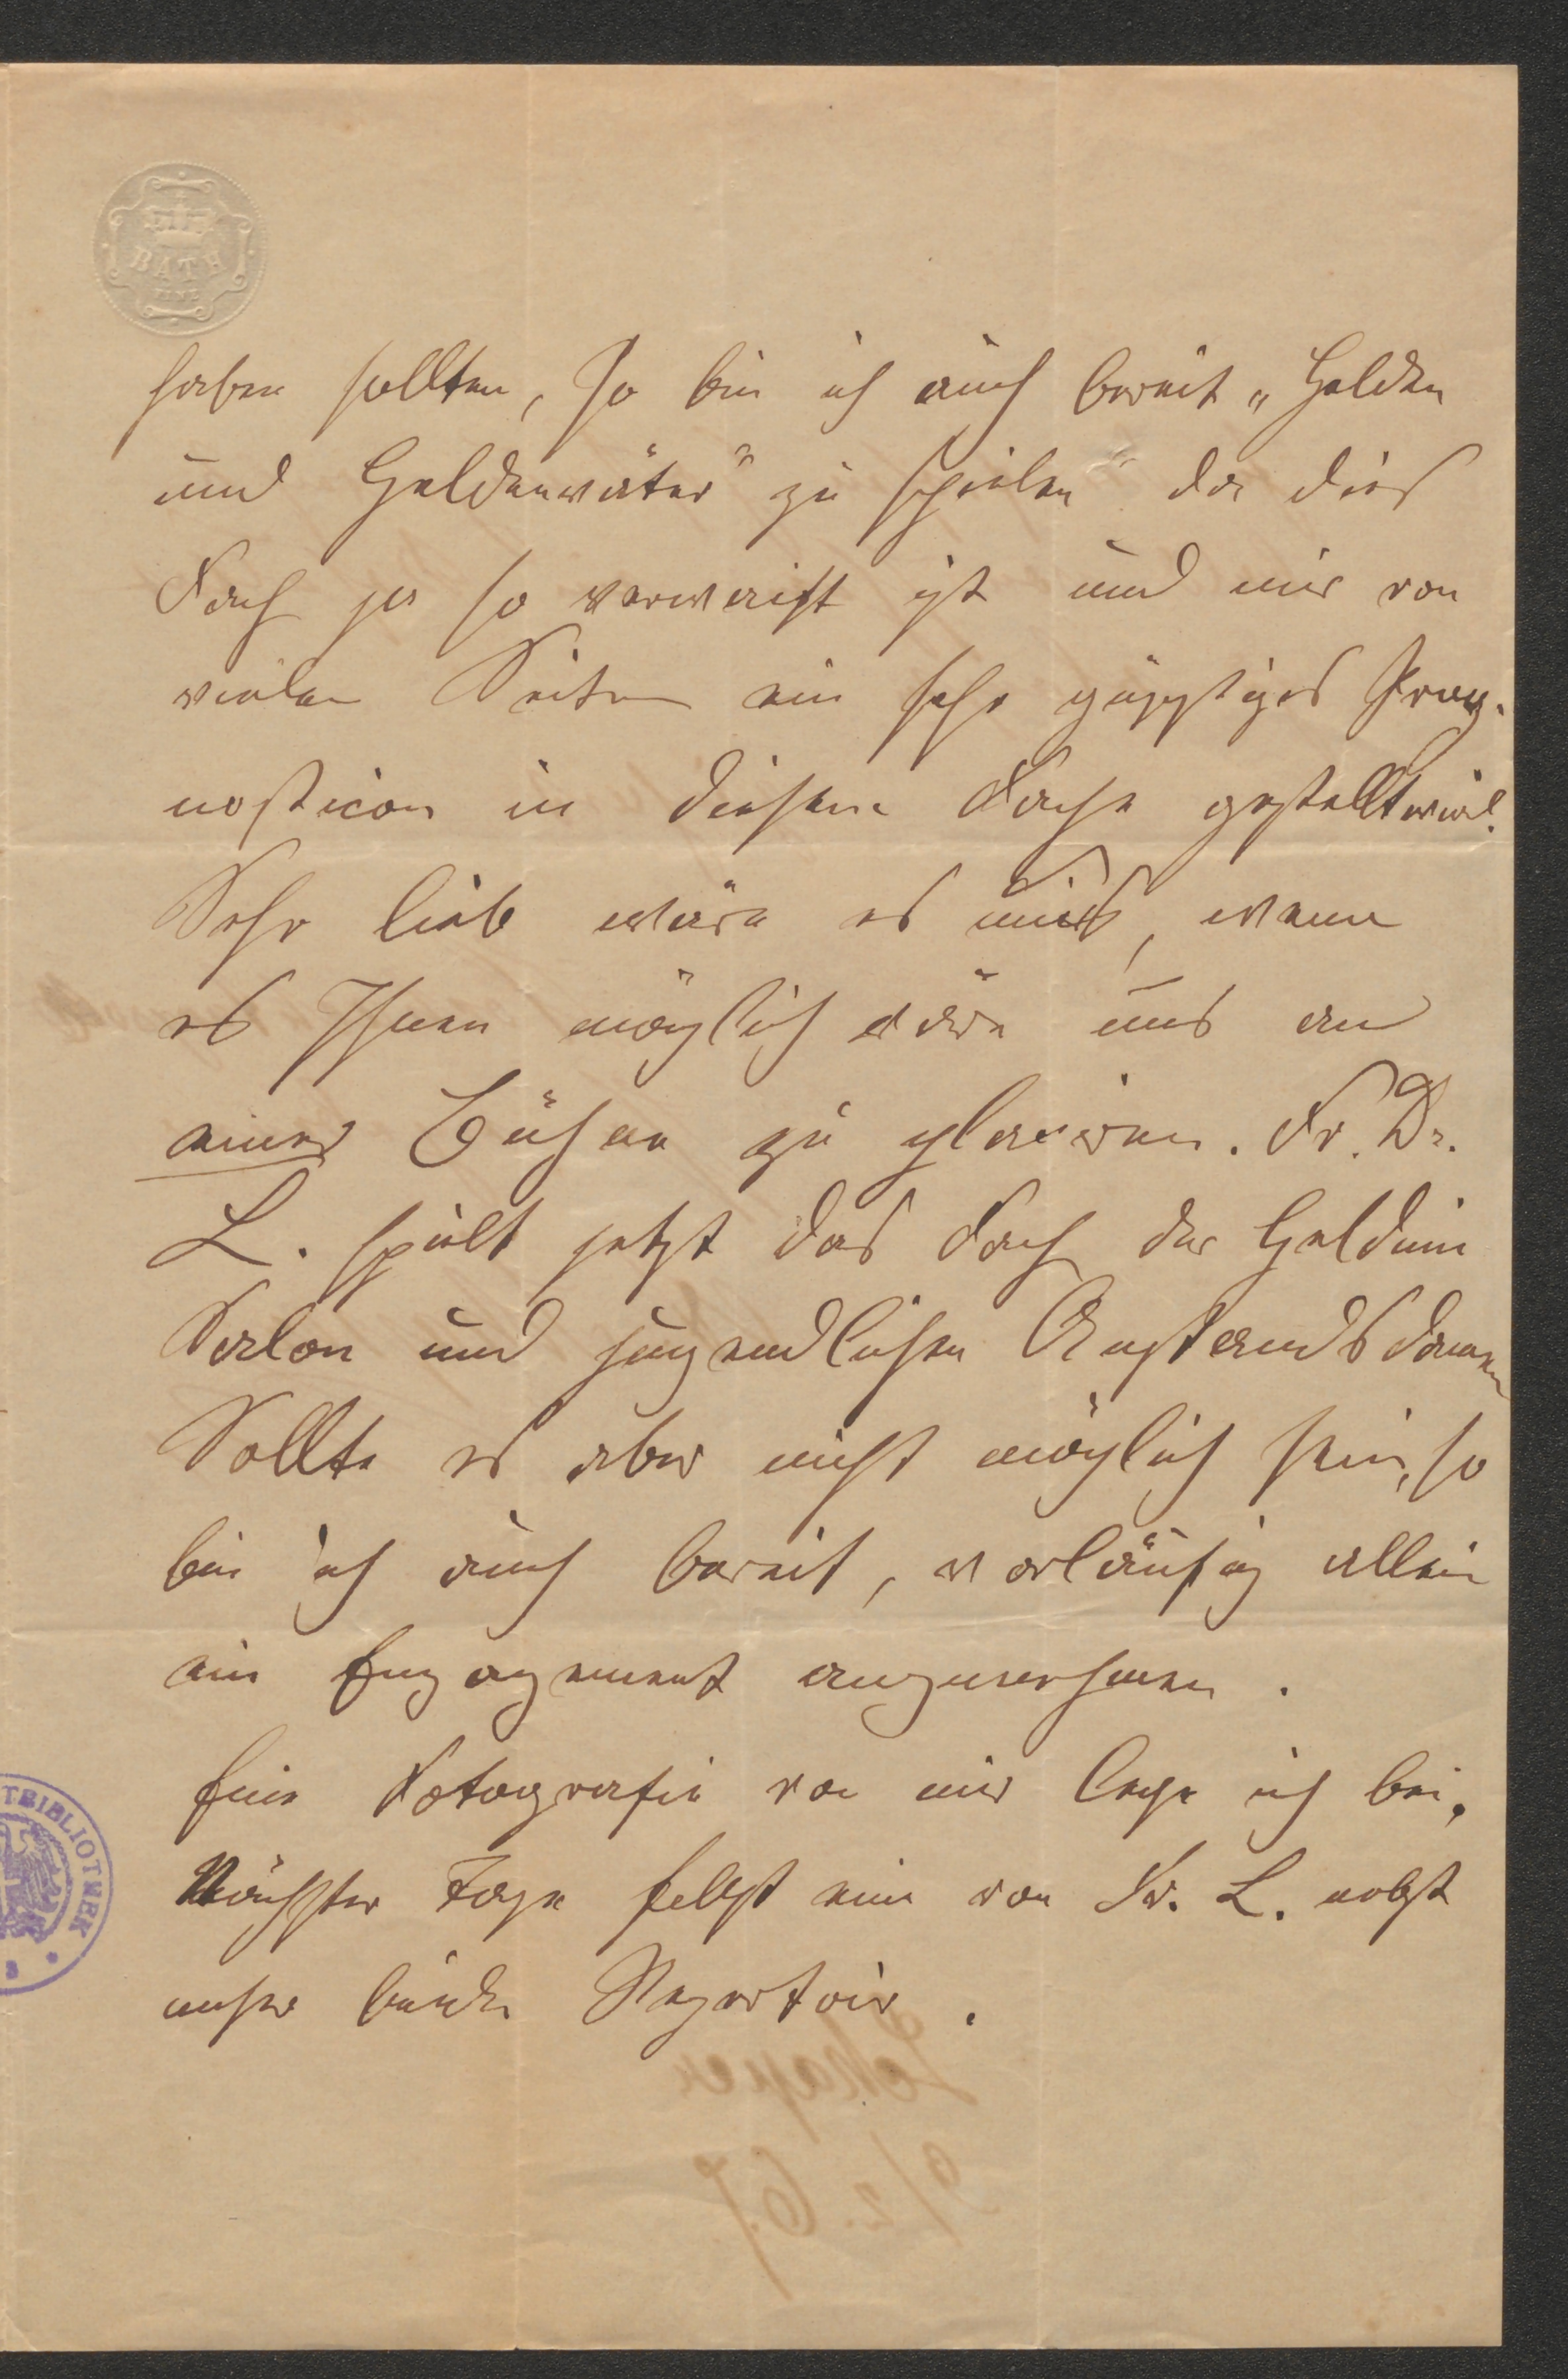 BATH
haben sollten, so bin ich auch bereit „Helden
und Heldenväter" zu spielen" da dies
Fach ja so verwaist ist und mir von
vielen Seiten ein sehr günstiges Prog-
nosticon in diesem Fache gestellt wird.
Sehr lieb wäre es mir, wenn
es Ihnen möglich wäre uns an
einer Bühne zu placiren. Fr. Dr.
L. spielt jetzt das Fach der Heldin
Salon und jugendlichen Anstandsdamen
Sollte es aber nicht möglich sein, so
bin ich auch bereit, vorläufig allein
ein Engagement anzunehmen.
Eine Fotografie von mir lege ich bei,
Nächster Tage folgt eine von Fr. L. nebst
unser beider Repertoir.
TBIBLIOTHEK